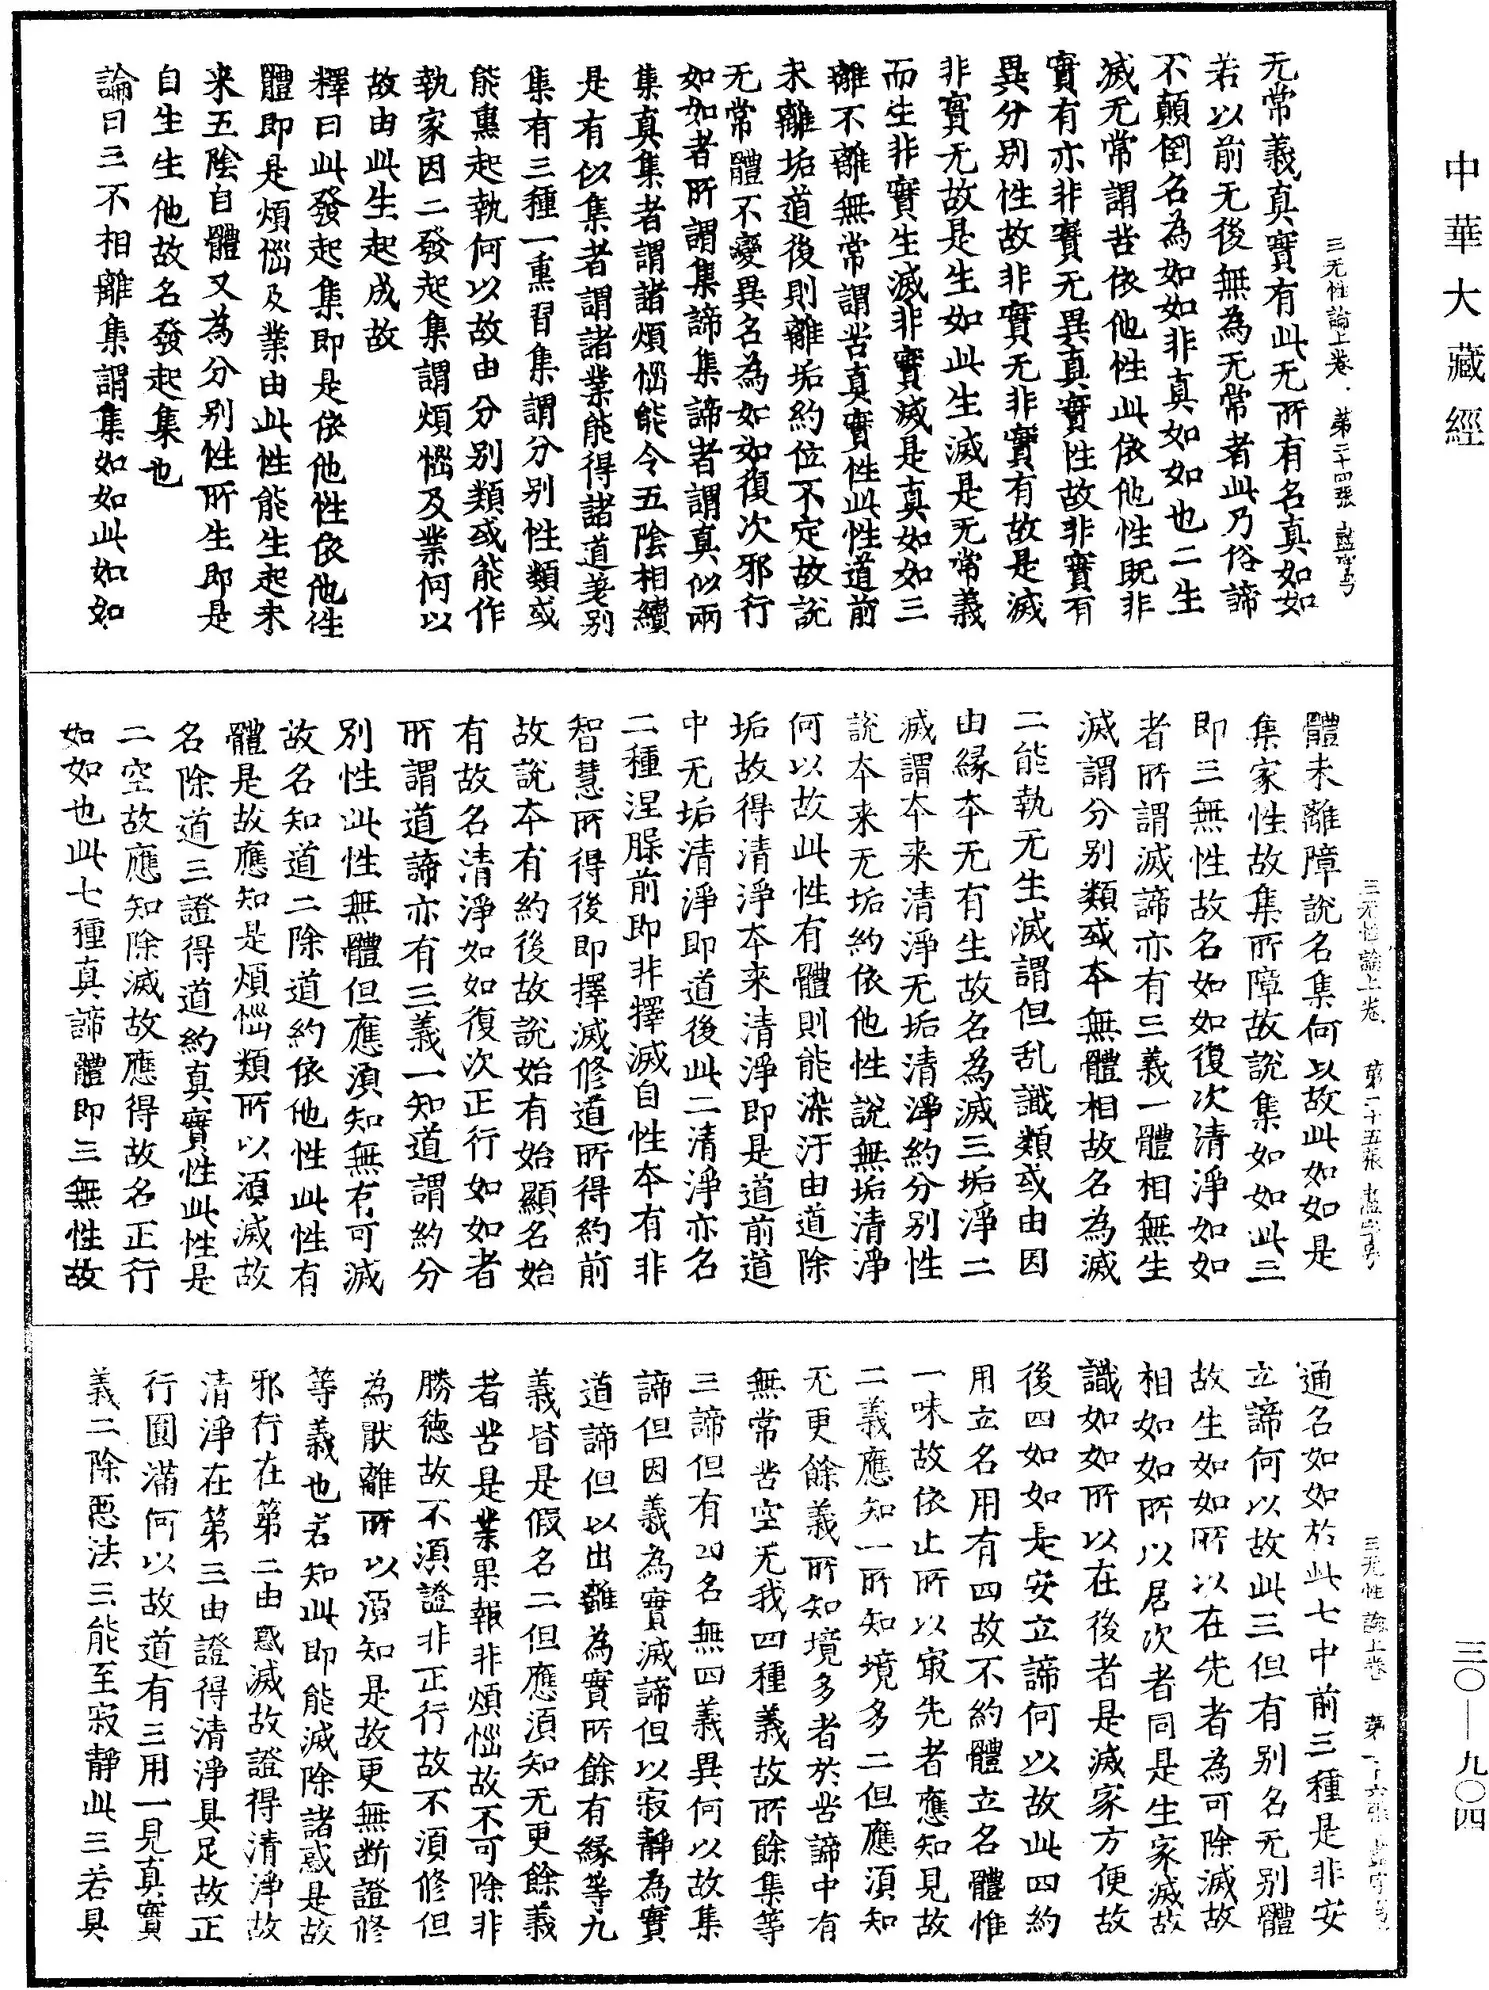 中華大藏經
三无性論上卷
无常義真實有此无所有名真如如
若以前无後無為无常者此乃俗諦
不顛倒名為如如非真如如也二生
滅无常謂苦依他性此依他性既非
實有亦非實无異真實性故非實有
異分别性故非實无非實有故是滅
非實无故是生如此生滅是无常義
而生非實生滅非實滅是真如如三
離不離無常謂苦真實性此性道前
未離垢道後則離垢約位不定故說
无常體不變異名為如如復次邪行
如如者所謂集諦集諦者謂真似兩
集真集者謂諸煩惱能令五陰相續
是有似集者謂諸業能得諸道差别
集有三種一熏習集謂分别性類或
能熏起執何以故由分别類或能作
執家因二發起集謂煩惱及業何以
故由此生起成故
釋曰此發起集即是依他性依他性
體即是煩惱及業由此性能生起未
来五陰自體又為分别性所生即是
自生生他故名發起集也
論曰三不相離集謂集如如此如如
三无性論上卷
體未離障說名集何以故此如如是
集家性故集所障故說集如如此三
即三無性故名如如復次清淨如如
者所謂滅諦亦有三義一體相無生
滅謂分别類或本無體相故名為滅
二能執无生滅謂但乱識類或由因
由緣本无有生故名為滅三垢淨二
滅謂本来清淨无垢清淨約分别性
說本来无垢約依他性說無垢清淨
何以故此性有體則能染汙由道除
垢故得清淨本来清淨即是道前道
中无垢清淨即道後此二清淨亦名
二種涅腺前即非擇滅自性本有非
智慧所得後即擇滅修道所得約前
故說本有約後故說始有始顯名始
有故名清淨如如復次正行如如者
所謂道諦亦有三義一知道謂約分
别性此性無體但應湏知無有可滅
故名知道二除道約依他性此性有
體是故應知是煩惱類所以湏滅故
名除道三證得道約真實性此性是
二空故應知除滅故應得故名正行
如如也此七種真諦體即三無性故
三无性論上卷
通名如如於此七中前三種是非安
立諦何以故此三但有别名无别體
故生如如所以在先者為可除滅故
相如如所以居次者同是生家滅故
識如如所以在後者是滅家方便故
後四如如是安立諦何以故此四約
用立名用有四故不約體立名體惟
一味故依止所以㝡先者應知見故
二義應知一所知境多二但應湏知
无更餘義所知境多者於苦諦中有
無常苦空无我四種義故所餘集等
三諦但有四名無四義異何以故集
諦但因義為實滅諦但以寂靜為實
道諦但以出離為實所餘有緣等九
義皆是假名二但應湏知无更餘義
者苦是業果報非煩惱故不可除非
勝德故不湏證非正行故不湏修但
為猒離所以湏知是故更無断證修
等義也若知此即能滅除諸惑是故
邪行在第二由惑滅故證得清淨故
清淨在第三由證得清淨具足故正
行圓滿何以故道有三用一見真實
義二除惡法三能至寂靜此三若具
三〇—九〇四